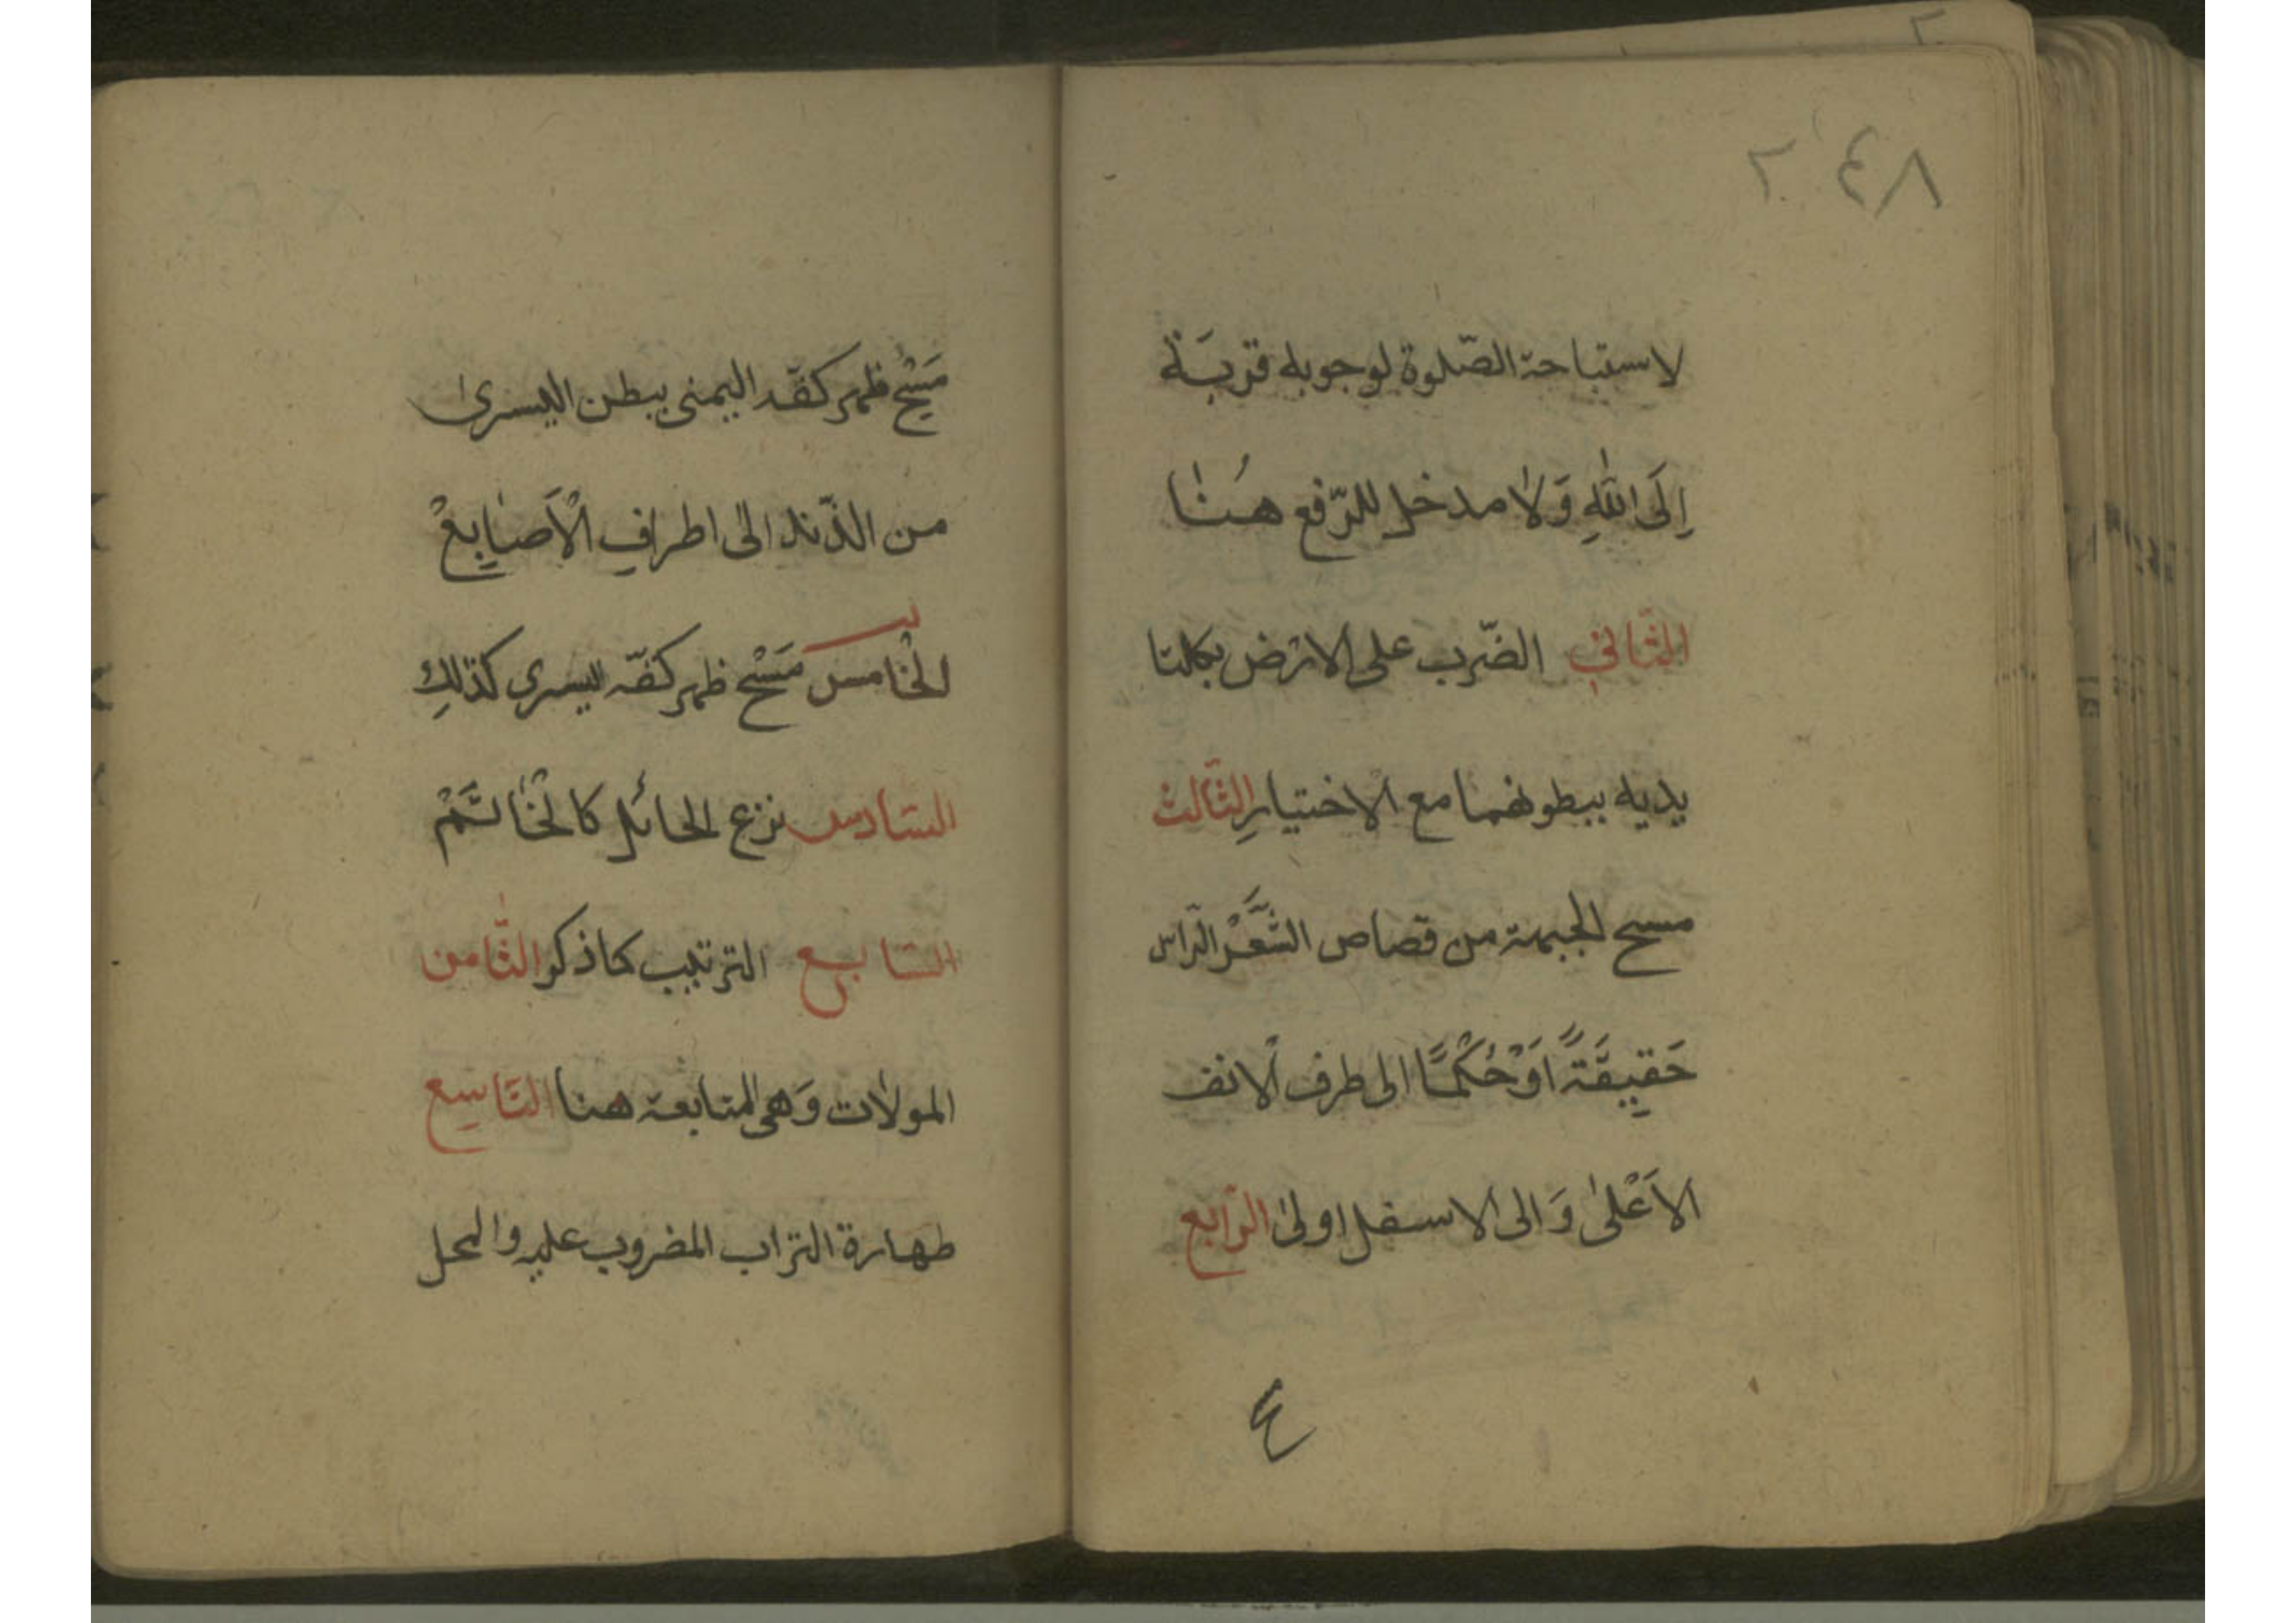 ٢٤٨
لاستباحة الصّلوة لوجوبه قربَة
اِلَى اللّٰهِ وَلا مدخل للرّفع هُنا
الثّاني الضّرب على الارض بكلتا
يديه ببطونهما مع الاختيارِ الثّالث
مسح الجبهة من قصاص الشَّعْر الرّاس
حَقيِقَةً اَوْ حُكْمًا الى طرف الانف
الاَعْلىٰ وَالى الاسفل اولىٰ الرّابع
مَسْح ظهر كفّه اليمنى ببطن اليسرىٰ
من الذّند الىٰ اطرافِ الْاَصٰابِعْ
الْخامس مَسْح ظهر كفّه ليسرى كذٰلِك
السّادس نزع الحائل كالْخٰاتَمْ
السّابع الترتيب كما ذكر الثّامن
المولات وَهى المتابعة هنا التّاسع
طهارة التراب المضروب عليه والمحل